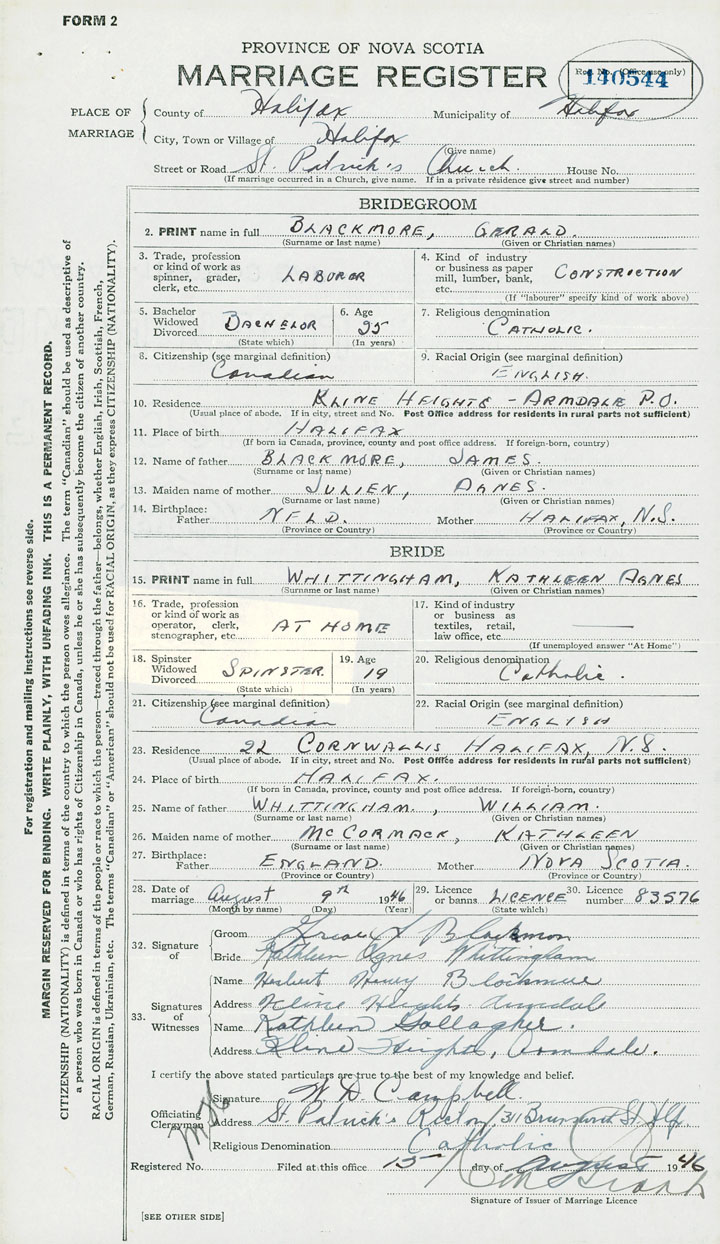 FORM 2
PROVINCE OF NOVA SCOTIA
MARRIAGE REGISTER
Reg. No. (Office use only)
140544
PLACE OF MARRIAGE
County of Halifax Municipality of Halifax
City, Town or Village of Halifax
(Give name)
Street or Road St. Patrick's Church House No.
(If marriage occurred in a Church, give name. If in a private résidence give street and number)
BRIDEGROOM
2. PRINT name in full BLACKMORE, GERALD.
(Surname or last name) (Given or Christian names)
3. Trade, profession or kind of work as spinner, grader, clerk, etc. LABORER
4. Kind of industry or business as paper mill, lumber, bank, etc. CONSTRUCTION
(If "labourer" specify kind of work above)
5. Bachelor Widowed Divorced BACHELOR
(State which)
6. Age 25
(In years)
7. Religious denomination
CATHOLIC.
8. Citizenship (see marginal definition)
Canadian
9. Racial Origin (see marginal definition)
ENGLISH.
10. Residence KLINE HEIGHTS - ARMDALE P.O.
(Usual place of abode. If in city, street and No. Post Office address for residents in rural parts not sufficient)
11. Place of birth HALIFAX
(If born in Canada, province, county and post office address. If foreign-born, country)
12. Name of father BLACKMORE, JAMES.
(Surname or last name) (Given or Christian names)
13. Maiden name of mother JULIEN, AGNES.
(Surname or last name) (Given or Christian names)
14. Birthplace: Father NFLD. Mother HALIFAX, N.S.
(Province or Country) (Province or Country)
BRIDE
15. PRINT name in full WHITTINGHAM, KATHLEEN AGNES
(Surname or last name) (Given or Christian names)
16. Trade, profession or kind of work as operator, clerk, stenographer, etc. AT HOME
17. Kind of industry or business as textiles, retail, law office, etc.
(If unemployed answer "At Home")
18. Spinster Widowed Divorced SPINSTER.
(State which)
19. Age 19
(In years)
20. Religious denomination
Catholic.
21. Citizenship (see marginal definition)
Canadian
22. Racial Origin (see marginal definition)
ENGLISH
23. Residence 22 CORNWALLIS HALIFAX, N.S.
(Usual place of abode. If in city, street and No. Post Office address for residents in rural parts not sufficient)
24. Place of birth HALIFAX.
(If born in Canada, province, county and post office address. If foreign-born, country)
25. Name of father WHITTINGHAM, WILLIAM.
(Surname or last name) (Given or Christian names)
26. Maiden name of mother MCCORMACK, KATHLEEN
(Surname or last name) (Given or Christian names)
27. Birthplace: Father ENGLAND. Mother NOVA SCOTIA.
(Province or Country) (Province or Country)
28. Date of marriage August 9th 1946
(Month by name) (Day) (Year)
29. Licence or banns LICENCE
(State which)
30. Licence number 83576
32. Signature of
Groom Blackmore
Bride Kathleen Agnes Whittingham
33. Signatures of Witnesses
Name Herbert Henry Blackmore
Address Kline Heights Armdale
Name Kathleen Gallagher.
Address Kline Heights, Armdale.
I certify the above stated particulars are true to the best of my knowledge and belief.
Officiating Clergyman
Signature W. D. Campbell
Address St. Patrick's Rectory, Brunswick St. Hlfx
Religious Denomination Catholic
Registered No. Filed at this office 15 day of August 1946
Signature of Issuer of Marriage Licence
[SEE OTHER SIDE]
For registration and mailing instructions see reverse side.
MARGIN RESERVED FOR BINDING. WRITE PLAINLY, WITH UNFADING INK. THIS IS A PERMANENT RECORD.
CITIZENSHIP (NATIONALITY) is defined in terms of the country to which the person owes allegiance. The term "Canadian" should be used as descriptive of
a person who was born in Canada or who has rights of Citizenship in Canada, unless he or she has subsequently become the citizen of another country.
RACIAL ORIGIN is defined in terms of the people or race to which the person—traced through the father—belongs, whether English, Irish, Scottish, French,
German, Russian, Ukrainian, etc. The terms "Canadian" or "American" should not be used for RACIAL ORIGIN, as they express CITIZENSHIP (NATIONALITY).